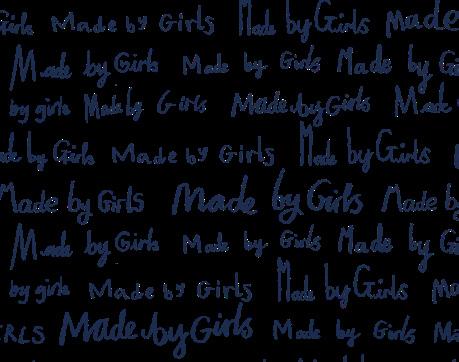 Girls Made by Girls Made by Girls Made
Made by Girls Made by Girls Made by
by girls Made by Girls Made by Girls Made
by Girls Made by Girls Made by Girls
Made by Girls Made by Girls Made by
Made by Girls Made by Girls Made by
by girls Made by Girls Made by Girls
Made by Girls Made by Girls